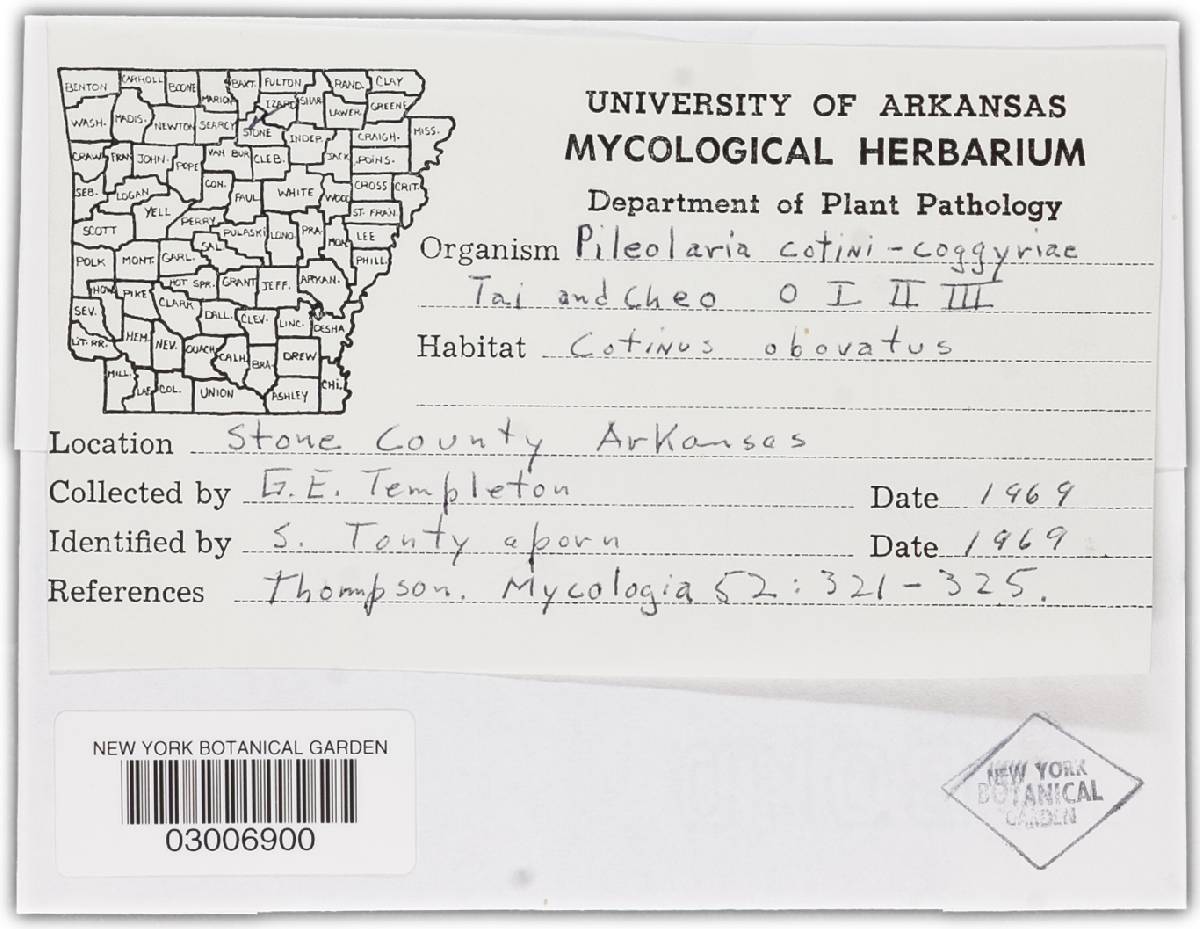 BENTON CARROLL BOONE MARION BAXT. FULTON RAND. CLAY
IZARD SHAR LAWER. GREENE
WASH. MADIS. NEWTON SEARCY STONE INDEP. CRAIGH. MISS.
CRAW. FRAN JOHN. POPE VAN BUR CLEB. JACK. POINS.
SEB. LOGAN CON. FAUL WHITE WOOD CROSS CRIT.
SCOTT YELL PERRY PULASKI LONO. PRA. ST. FRAN.
SAL. MON. LEE
POLK MONT. GARL. PHILL.
HOW. PIKE HOT SPR. GRANT JEFF. ARKAN.
SEV. CLARK DALL. CLEV. LINC. DESHA
LIT. RR. HEM. NEV. OUACH. CALH. BRA. DREW
MILL. LAF. COL. UNION ASHLEY CHI.
UNIVERSITY OF ARKANSAS
MYCOLOGICAL HERBARIUM
Department of Plant Pathology
Organism Pileolaria cotini-coggyriae
Tai and Cheo O I II III
Habitat Cotinus obovatus
Location Stone County Arkansas
Collected by G.E. Templeton Date 1969
Identified by S. Tontyaporn Date 1969
References Thompson. Mycologia 52:321-325.
NEW YORK BOTANICAL GARDEN
03006900
NEW YORK
BOTANICAL
GARDEN